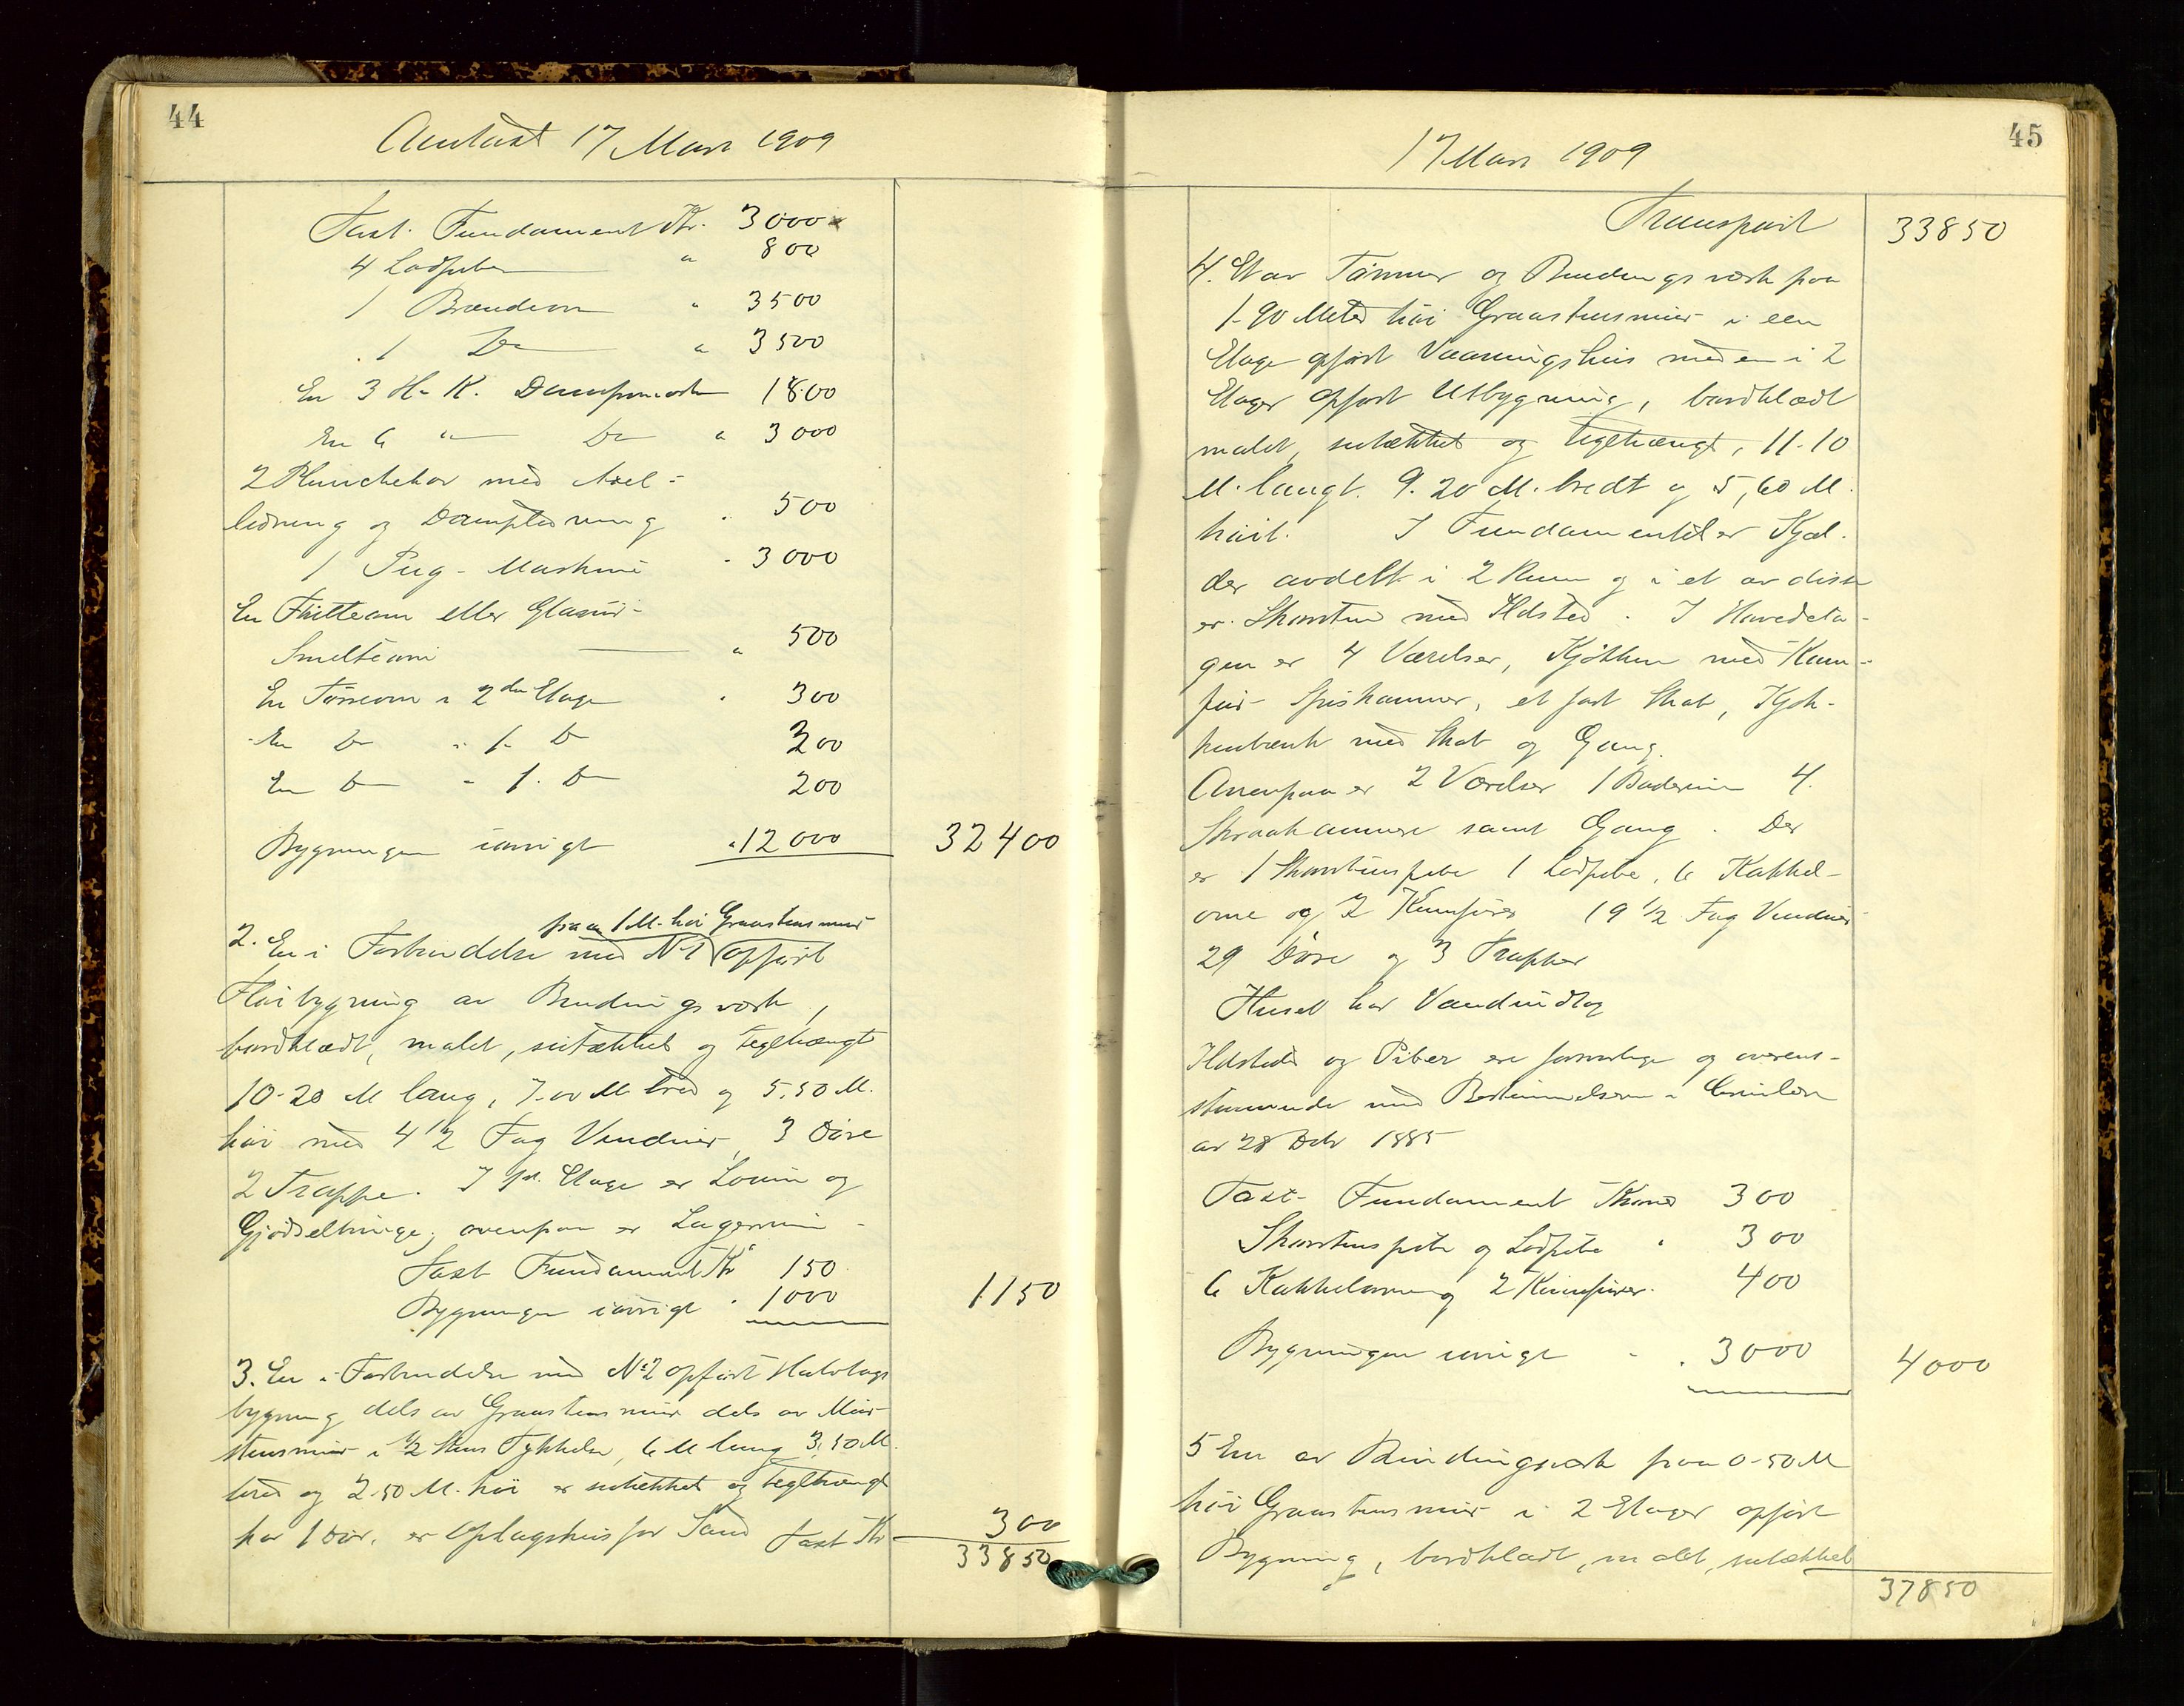 44
Omtaxt 17 Mars 1909
Taxt. Fundament Kr. 3000
4 Lodpiber " 800
1 Brændeovn " 3500
1 Do " 3500
En 3 H. K. Dampmaskin 1800
En 6 " Do " 3000
2 med Axel-
ledning og Dampledning " 500
1 Pug-Maskine " 3000
En Fritteovn eller Glasur-
Smelteovn " 500
En Tørreovn i 2den Etage " 300
En Do " 1. Do 300
En Do " 1. Do 200
Bygningen iøvrigt " 12000 32400
paa 1 M. høi Graastensmur
2. En i Forbindelse med No 1 opført
Fløibygning av Bindingsverk,
bordklædt, malet, sutækket og teglhængt
10.20 M lang, 7.00 M bred og 5.50 M.
høi med 4 1/2 Fag Vinduer, 3 Døre
2 Trappe. I 1ste Etage er og
Gjødselbinge; ovenpaa er Lagerrum.
Taxt Fundament Kr 150
Bygningen iøvrigt " 1000 1150
3. En i Forbindelse med No 2 opført Halvtags
bygning dels av Graastensmur dels av Mur-
stensmur i 1/2 Stens Tykkelse, 6 M lang 3.50 M.
bred og 2.50 M. høi er sutækket og teglhængt
har 1 Dør. er Oplagshus for Sand Taxt Kr 300
33850
45
17 Mars 1909
Transport 33850
4. Et av Tømmer og Bindingsverk paa
1.90 Meter høi Graastensmur i een
Etage opført Vaaningshus med en i 2
Etager opført Utbygning, bordklædt
malet, sutækket og teglhængt, 11.10
M. langt. 9.20 M. bredt og 5,60 M.
høit. I Fundamentet er Kjæl-
der avdelt i 2 Rum og i et av disse
er Skorsten med Ildsted. I Hovedeta-
gen er 4 Værelser, Kjøkken med Kom-
fur Spiskammer, et fast Skab, Kjøk-
kenbænk med Skab og Gang.
Ovenpaa er 2 Værelser 1 Baderum 4
Skraakammere samt Gang. Der
er 1 Skorstenspibe 1 Lodpibe, 6 Kakkel-
ovne og 2 Komfurer 19 1/2 Fag Vinduer
29 Døre og 3 Trapper
Huset har Vandindlag
Ildsteder og Piber ere forsvarlige og overens-
stemmende med Bestemmelserne i
av 28 Debr 1885
Taxt- Fundament Kroner 300
Skorstenspibe og Lodpibe " 300
6 Kakkelovne og 2 Komfurer. 400
Bygningen iøvrigt " 3000 4000
5 En av Bindingsverk paa 0.50 M
høi Graastensmur i 2 Etager opført
Bygning, bordklædt, malet, sutækket
37850